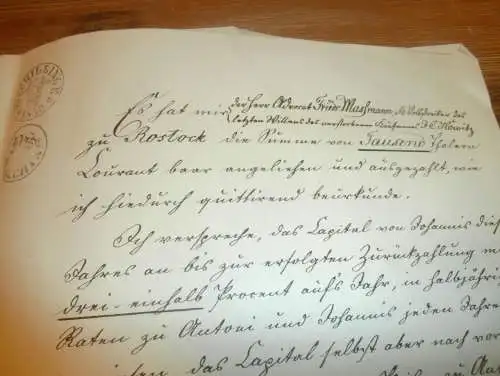 Es hat mir der Herr Advocat Friedr. Maßmann, als Vollstrecker des
letzten Willens des verstorbenen Kaufmanns
zu Rostock die Summe von Tausend Thalern
Courant baar angeliehen und ausgezahlt, wie
ich hiedurch quittirend beurkunde.
Ich verspreche, das Capital von Johannis dies
Jahres an bis zur erfolgten Zurückzahlung m
drei-einhalb Procent auf's Jahr, in halbjähri
Raten zu Antoni und Johannis jeden Jahre
das Capital selbst aber nach vor